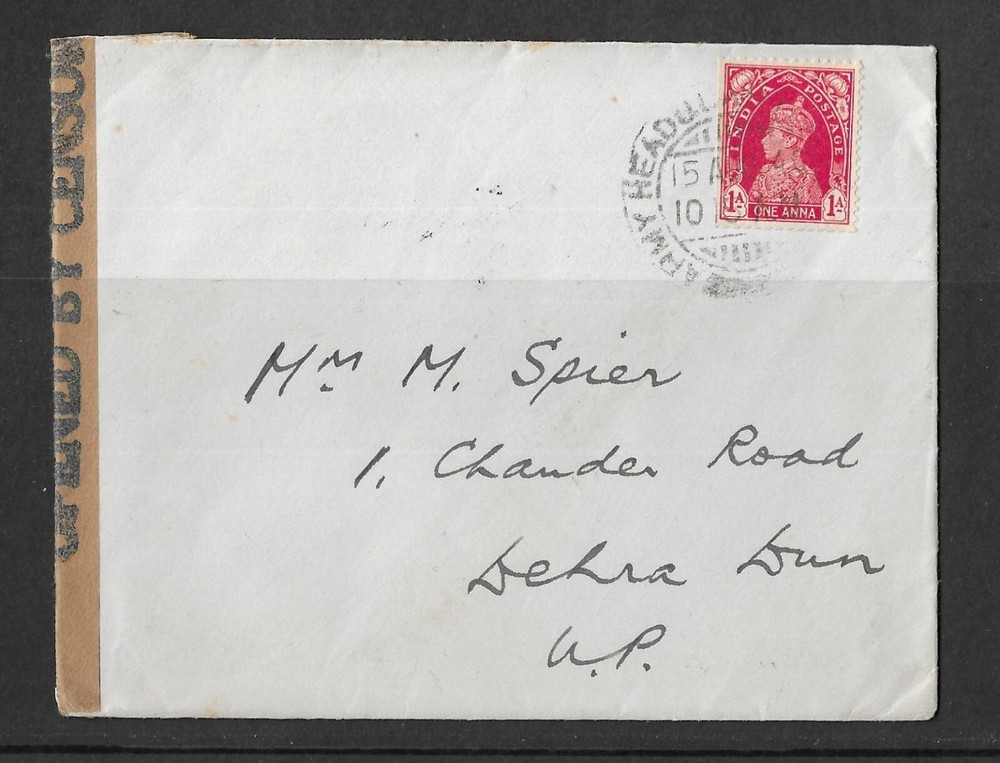 OPENED BY CENSOR
ARMY HEADQU
15 A
10
INDIA POSTAGE
1A 1A
ONE ANNA
Mrs M. Spier
1, Chander Road
Dehra Dun
U.P.